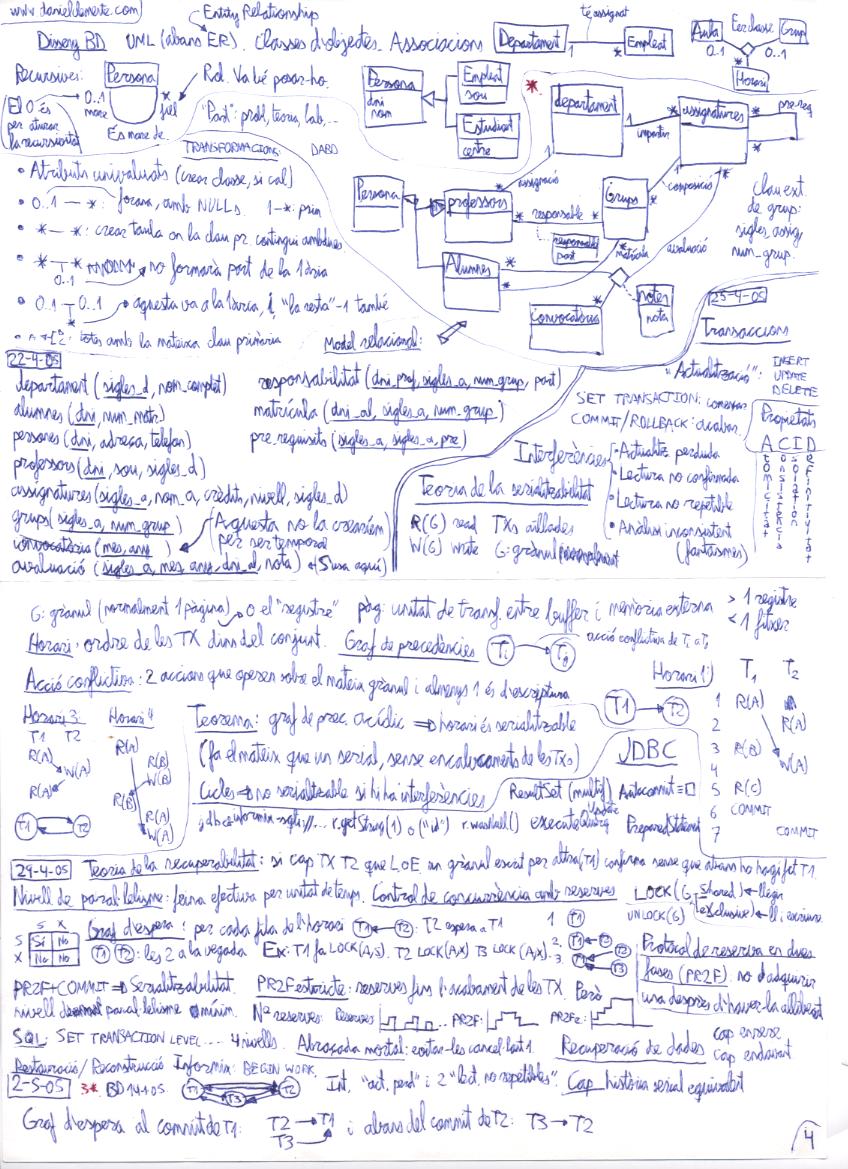 www.danielclemente.com
Entity Relationship
Disseny BD UML (abans ER). Classes d'objectes. Associacions
Departament 1 té assignat * Empleat
Aula 0..1 Es classe 0..1 Grup
Horari
Recursives: Persona
0..1 mare * fill
És mare de
Rol. Va bé posar-ho.
El 0 és
per aturar
la recursivitat
"Part": prob, teoria, lab,...
Persona
dni
nom
Empleat
sou
Estudiant
centre
*
departament
impartir
assignatures
pre-req
assignació
composició
Persona
professors
responsable
responsable
part
Grups
matrícula
avaluació
Alumnes
convocatòria
notes
nota
Clau ext.
de grup:
sigles_assig,
num_grup.
TRANSFORMACIONS DABD
• Atributs univaluats (crear classe, si cal)
• 0..1 — *: forana, amb NULLs. 1-*: prim
• * — *: crear taula on la clau pr. contingui ambdues
• * — * no formarà part de la clària
0..1
• 0..1 — 0..1 aquesta va a la clària, i "la resta" -1 també
*
totes amb la mateixa clau primària
Model relacional:
22-4-05
departament (sigles_d, nom_complet)
alumnes (dni, num_matr)
persones (dni, adreça, telefon)
professors (dni, sou, sigles_d)
assignatures (sigles_a, nom_a, credits, nivell, sigles_d)
grups (sigles_a, num_grup)
convocatòria (mes, any)
avaluació (sigles_a, mes, any, dni_al, nota)
responsabilitat (dni_prof, sigles_a, num_grup, part)
matrícula (dni_al, sigles_a, num_grup)
pre_requisits (sigles_a, sigles_a_pre)
Aquesta no la crearíem
per ser temporal
(S'usa aquí)
25-4-05
Transaccions
"Actualització": INSERT
UPDATE
DELETE
SET TRANSACTION: començar
COMMIT/ROLLBACK: acabar.
Propietats
A C I D
Atomicitat
Consistència
Isolation
Definitivitat
Interferències
• Actualitz. perduda
• Lectura no confirmada
• Lectura no repetible
• Anàlisi inconsistent
(fantasmes)
Teoria de la serialitzabilitat
R(G) read TXs aïllades
W(G) write G: grànul
G: grànul (normalment 1 pàgina) o el "registre" pàg: unitat de transf. entre buffer i memòria externa > 1 registre
< 1 fitxer
Horari: ordre de les TX dins del conjunt. Graf de precedències Ti Tj acció conflictiva de Ti a Tj
Acció conflictiva: 2 accions que operen sobre el mateix grànul i almenys 1 és d'escriptura
Horari 1) T1 T2
T1 T2
1 R(A)
2 R(A)
3 R(B)
4 W(A)
5 R(C)
6 COMMIT
7 COMMIT
Horari 3 Horari 4
T1 T2
R(A)
W(A)
R(A)
T1 T2
R(A)
R(B)
W(B)
R(B)
R(A)
W(A)
Teorema: graf de prec. acíclic ⇒ horari és serialitzable
(fa el mateix que un serial, sense encalvacaments de les TXs)
Cicles ⇒ no serialitzable si hi ha interferències
JDBC
ResultSet (multif) Autocommit =
jdbc:informix-sqli://... r.getString(1) o ("id") r.wasNull() executeQuery Update PreparedStatement
29-4-05 Teoria de la recuperabilitat: si cap TX T2 que L o E un grànul escrit per altra (T1) confirma sense que abans ho hagi fet T1.
Nivell de paral·lelisme: feina efectiva per unitat de temps. Control de concurrència amb reserves LOCK(G, shared) llegir
UNLOCK(G) (exclusive) ll i escriure
S X
S Sí No
X No No
Graf d'espera: per cada fila de l'horari T1 T2: T2 espera a T1
T1 T2: les 2 a la vegada Ex: T1 fa LOCK(A,S). T2 LOCK(A,X) T3 LOCK(A,X).
1 T1
2. T1 T2
3. T1 T2 T3
Protocol de reserva en dues
fases (PR2F): no d'adquirir
una després d'haver-la alliberat
PR2F+COMMIT ⇒ Serialitzabilitat. PR2F estricte: reserves fins l'acabament de les TX. Però
nivell paral·lelisme mínim. Nº reserves: Reserves PR2F: PR2Fe:
SQL: SET TRANSACTION LEVEL.... 4 nivells. Abraçada mortal: evitar-les cancel·lant 1. Recuperació de dades cap enrere
cap endavant
Restauració/Reconstrucció Informix: BEGIN WORK.
2-5-05 3* BD 14-1-05 T1 T2 T3 Int, "act. perd" i 2 "lect. no repetibles". Cap història serial equivalent
Graf d'espera al commit de T1: T2 → T1 i abans del commit de T2: T3 → T2
T3
4